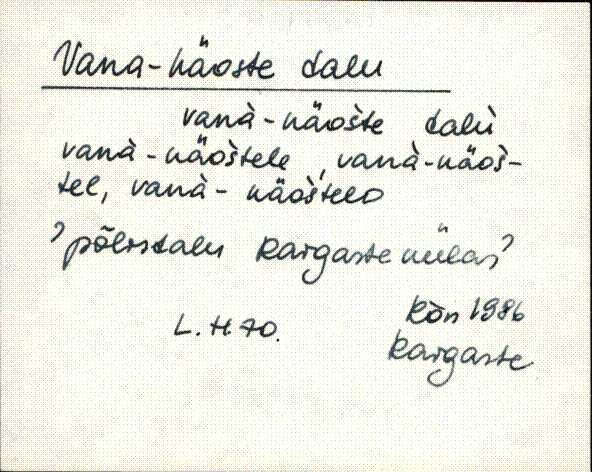 Vana-näoste talu
vanà-näošte talù
vanà-näoštele, vanà-näoš-
tel, vanà-näoštelo
'põlistalu Kaigaste külas'
L.H. 70. Kõn 1986
Kaigaste